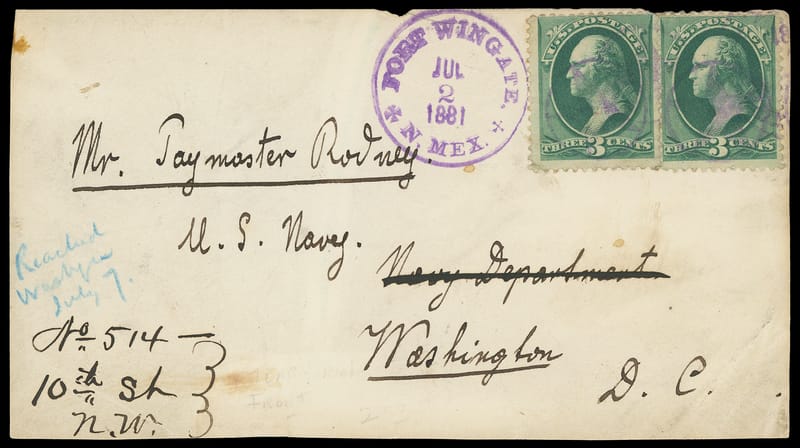 FORT WINGATE.
JUL
2
1881
N. MEX.
U.S. POSTAGE
THREE 3 CENTS
U.S. POSTAGE
THREE 3 CENTS
Mr. Paymaster Rodney.
U. S. Navy.
Navy Department.
Washington
D. C.
Reached
Washgn
July 7.
No 514 —
10th St
N.W.